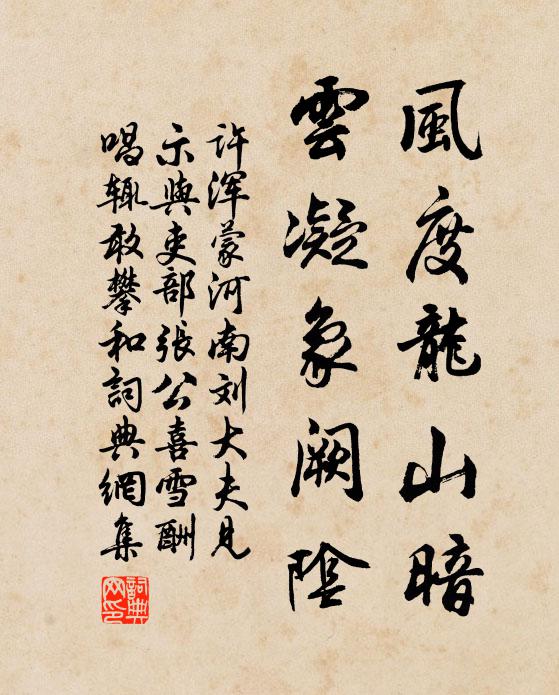 風度龍山暗
雲凝象阙陰
许浑蒙河南刘大夫见
示與吏部張公喜雪酬
唱辄敢攀和詞典網集
詞典網印